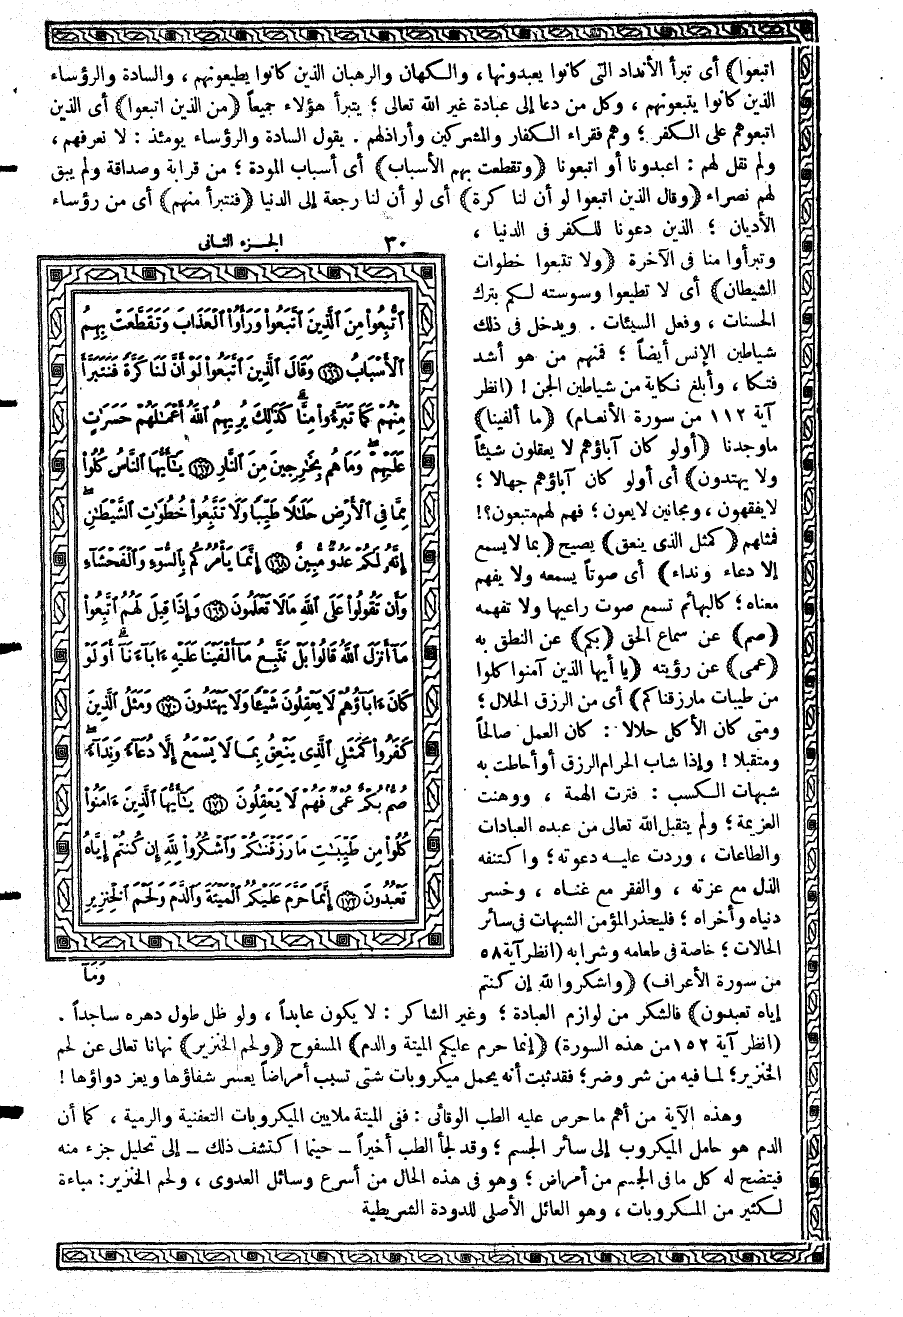 اتبعوا) أى تبرأ الأنداد التى كانوا يعبدونها، والكهان والرهبان الذين كانوا يطيعونهم، والسادة والرؤساء
الذين كانوا يتبعونهم، وكل من دعا إلى عبادة غير الله تعالى؛ يتبرأ هؤلاء جميعاً (من الذين اتبعوا) أى الذين
اتبعوهم على الكفر؛ وهم فقراء الكفار والمشركين وأراذلهم. يقول السادة والرؤساء يومئذ: لا نعرفهم،
ولم نقل لهم: اعبدونا أو اتبعونا (وتقطعت بهم الأسباب) أى أسباب المودة؛ من قرابة وصداقة ولم يبق
لهم نصراء (وقال الذين اتبعوا لو أن لنا كرة) أى لو أن لنا رجعة إلى الدنيا (فنتبرأ منهم) أى من رؤساء
الأديان؛ الذين دعونا للكفر فى الدنيا،
وتبرأوا منا فى الآخرة (ولا تتبعوا خطوات
الشيطان) أى لا تطيعوا وسوسته لكم بترك
الحسنات، وفعل السيئات. ويدخل فى ذلك
شياطين الإنس أيضاً؛ فمنهم من هو أشد
فتكا، وأبلغ نكاية من شياطين الجن! (انظر
آية ١١٢ من سورة الأنعام) (ما ألفينا)
ماوجدنا (أولو كان آباؤهم لا يعقلون شيئاً
ولا يهتدون) أى أولو كان آباؤهم جهالا؛
لا يفقهون، ومجانين لا يعون؛ فهم لهم متبعون؟!
فمثلهم (كمثل الذى ينعق) يصيح (بما لا يسمع
إلا دعاء ونداء) أى صوتاً يسمعه ولا يفهم
معناه؛ كالبهائم تسمع صوت راعيها ولا تفهمه
(صم) عن سماع الحق (بكم) عن النطق به
(عمى) عن رؤيته (يا أيها الذين آمنوا كلوا
من طيبات مارزقناكم) أى من الرزق الحلال؛
ومتى كان الأكل حلالا: كان العمل صالحاً
ومتقبلا! وإذا شاب الحرام الرزق أو أحاطت به
شبهات الكسب: فترت الهمة، ووهنت
العزيمة؛ ولم يتقبل الله تعالى من عبده العبادات
والطاعات، وردت عليه دعوته؛ واكتنفه
الذل مع عزته، والفقر مع غناه، وخسر
دنياه وأخراه؛ فليحذر المؤمن الشبهات فى سائر
الحالات؛ خاصة فى طعامه وشرابه (انظر آية ٥٨
من سورة الأعراف) (واشكروا لله إن كنتم
٣٠ الجزء الثانى
ٱتُّبِعُوا۟ مِنَ ٱلَّذِينَ ٱتَّبَعُوا۟ وَرَأَوُا۟ ٱلْعَذَابَ وَتَقَطَّعَتْ بِهِمُ
ٱلْأَسْبَابُ ﴿١٦٦﴾ وَقَالَ ٱلَّذِينَ ٱتَّبَعُوا۟ لَوْ أَنَّ لَنَا كَرَّةً فَنَتَبَرَّأَ
مِنْهُمْ كَمَا تَبَرَّءُوا۟ مِنَّا ۗ كَذَٰلِكَ يُرِيهِمُ ٱللَّهُ أَعْمَـٰلَهُمْ حَسَرَٰتٍ
عَلَيْهِمْ ۖ وَمَا هُم بِخَـٰرِجِينَ مِنَ ٱلنَّارِ ﴿١٦٧﴾ يَـٰٓأَيُّهَا ٱلنَّاسُ كُلُوا۟
مِمَّا فِى ٱلْأَرْضِ حَلَـٰلًا طَيِّبًا وَلَا تَتَّبِعُوا۟ خُطُوَٰتِ ٱلشَّيْطَـٰنِ ۚ
إِنَّهُۥ لَكُمْ عَدُوٌّ مُّبِينٌ ﴿١٦٨﴾ إِنَّمَا يَأْمُرُكُم بِٱلسُّوٓءِ وَٱلْفَحْشَآءِ
وَأَن تَقُولُوا۟ عَلَى ٱللَّهِ مَا لَا تَعْلَمُونَ ﴿١٦٩﴾ وَإِذَا قِيلَ لَهُمُ ٱتَّبِعُوا۟
مَآ أَنزَلَ ٱللَّهُ قَالُوا۟ بَلْ نَتَّبِعُ مَآ أَلْفَيْنَا عَلَيْهِ ءَابَآءَنَآ ۗ أَوَلَوْ
كَانَ ءَابَآؤُهُمْ لَا يَعْقِلُونَ شَيْـًٔا وَلَا يَهْتَدُونَ ﴿١٧٠﴾ وَمَثَلُ ٱلَّذِينَ
كَفَرُوا۟ كَمَثَلِ ٱلَّذِى يَنْعِقُ بِمَا لَا يَسْمَعُ إِلَّا دُعَآءً وَنِدَآءً ۚ
صُمٌّۢ بُكْمٌ عُمْىٌ فَهُمْ لَا يَعْقِلُونَ ﴿١٧١﴾ يَـٰٓأَيُّهَا ٱلَّذِينَ ءَامَنُوا۟
كُلُوا۟ مِن طَيِّبَـٰتِ مَا رَزَقْنَـٰكُمْ وَٱشْكُرُوا۟ لِلَّهِ إِن كُنتُمْ إِيَّاهُ
تَعْبُدُونَ ﴿١٧٢﴾ إِنَّمَا حَرَّمَ عَلَيْكُمُ ٱلْمَيْتَةَ وَٱلدَّمَ وَلَحْمَ ٱلْخِنزِيرِ
وَمَآ
إياه تعبدون) فالشكر من لوازم العبادة؛ وغير الشاكر: لا يكون عابداً، ولو ظل طول دهره ساجداً.
(انظر آية ١٥٢ من هذه السورة) (إنما حرم عليكم الميتة والدم) المسفوح (ولحم الخنزير) نهانا تعالى عن لحم
الخنزير؛ لما فيه من شر وضر؛ فقد ثبت أنه يحمل ميكروبات شتى تسبب أمراضاً يعسر شفاؤها ويعز دواؤها!
وهذه الآية من أهم ما حرص عليه الطب الوقائى: ففى الميتة ملايين الميكروبات التعفنية والرمية، كما أن
الدم هو حامل الميكروب إلى سائر الجسم؛ وقد لجأ الطب أخيراً ــ حينما اكتشف ذلك ــ إلى تحليل جزء منه
فيتضح له كل ما فى الجسم من أمراض؛ وهو فى هذه الحال من أسرع وسائل العدوى، ولحم الخنزير: مباءة
لكثير من المكروبات، وهو العائل الأصلى للدودة الشريطية